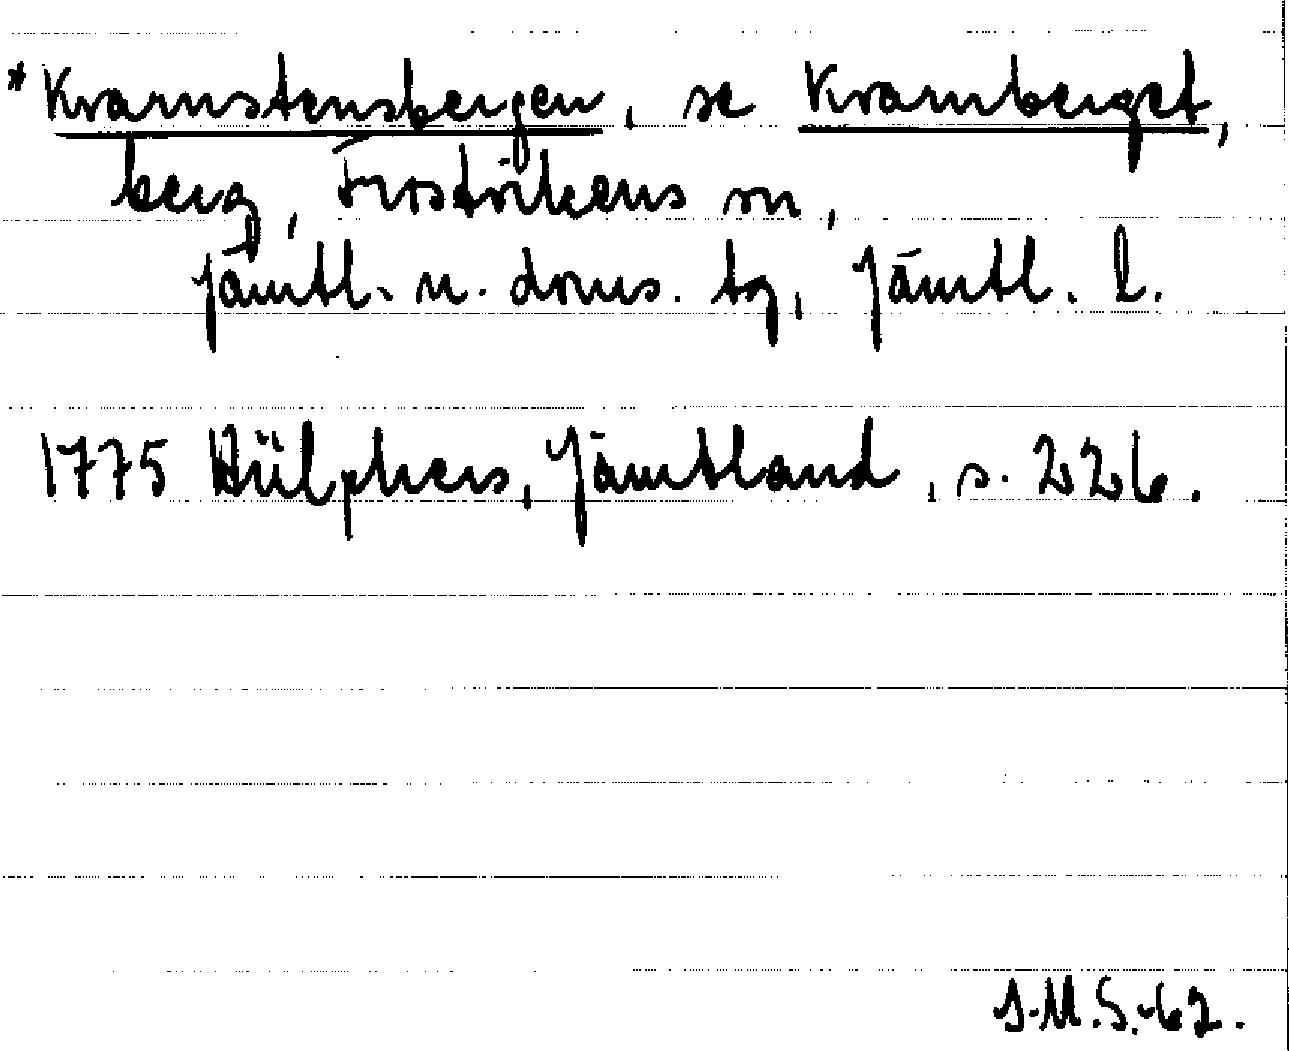 *Kramstensbergen, se Kramberget,
berg, Frostvikens sn,
Jämtl. n. doms. tg, Jämtl. l.
1775 Hülphers, Jämtland, s. 226.
J.M.S.-62.